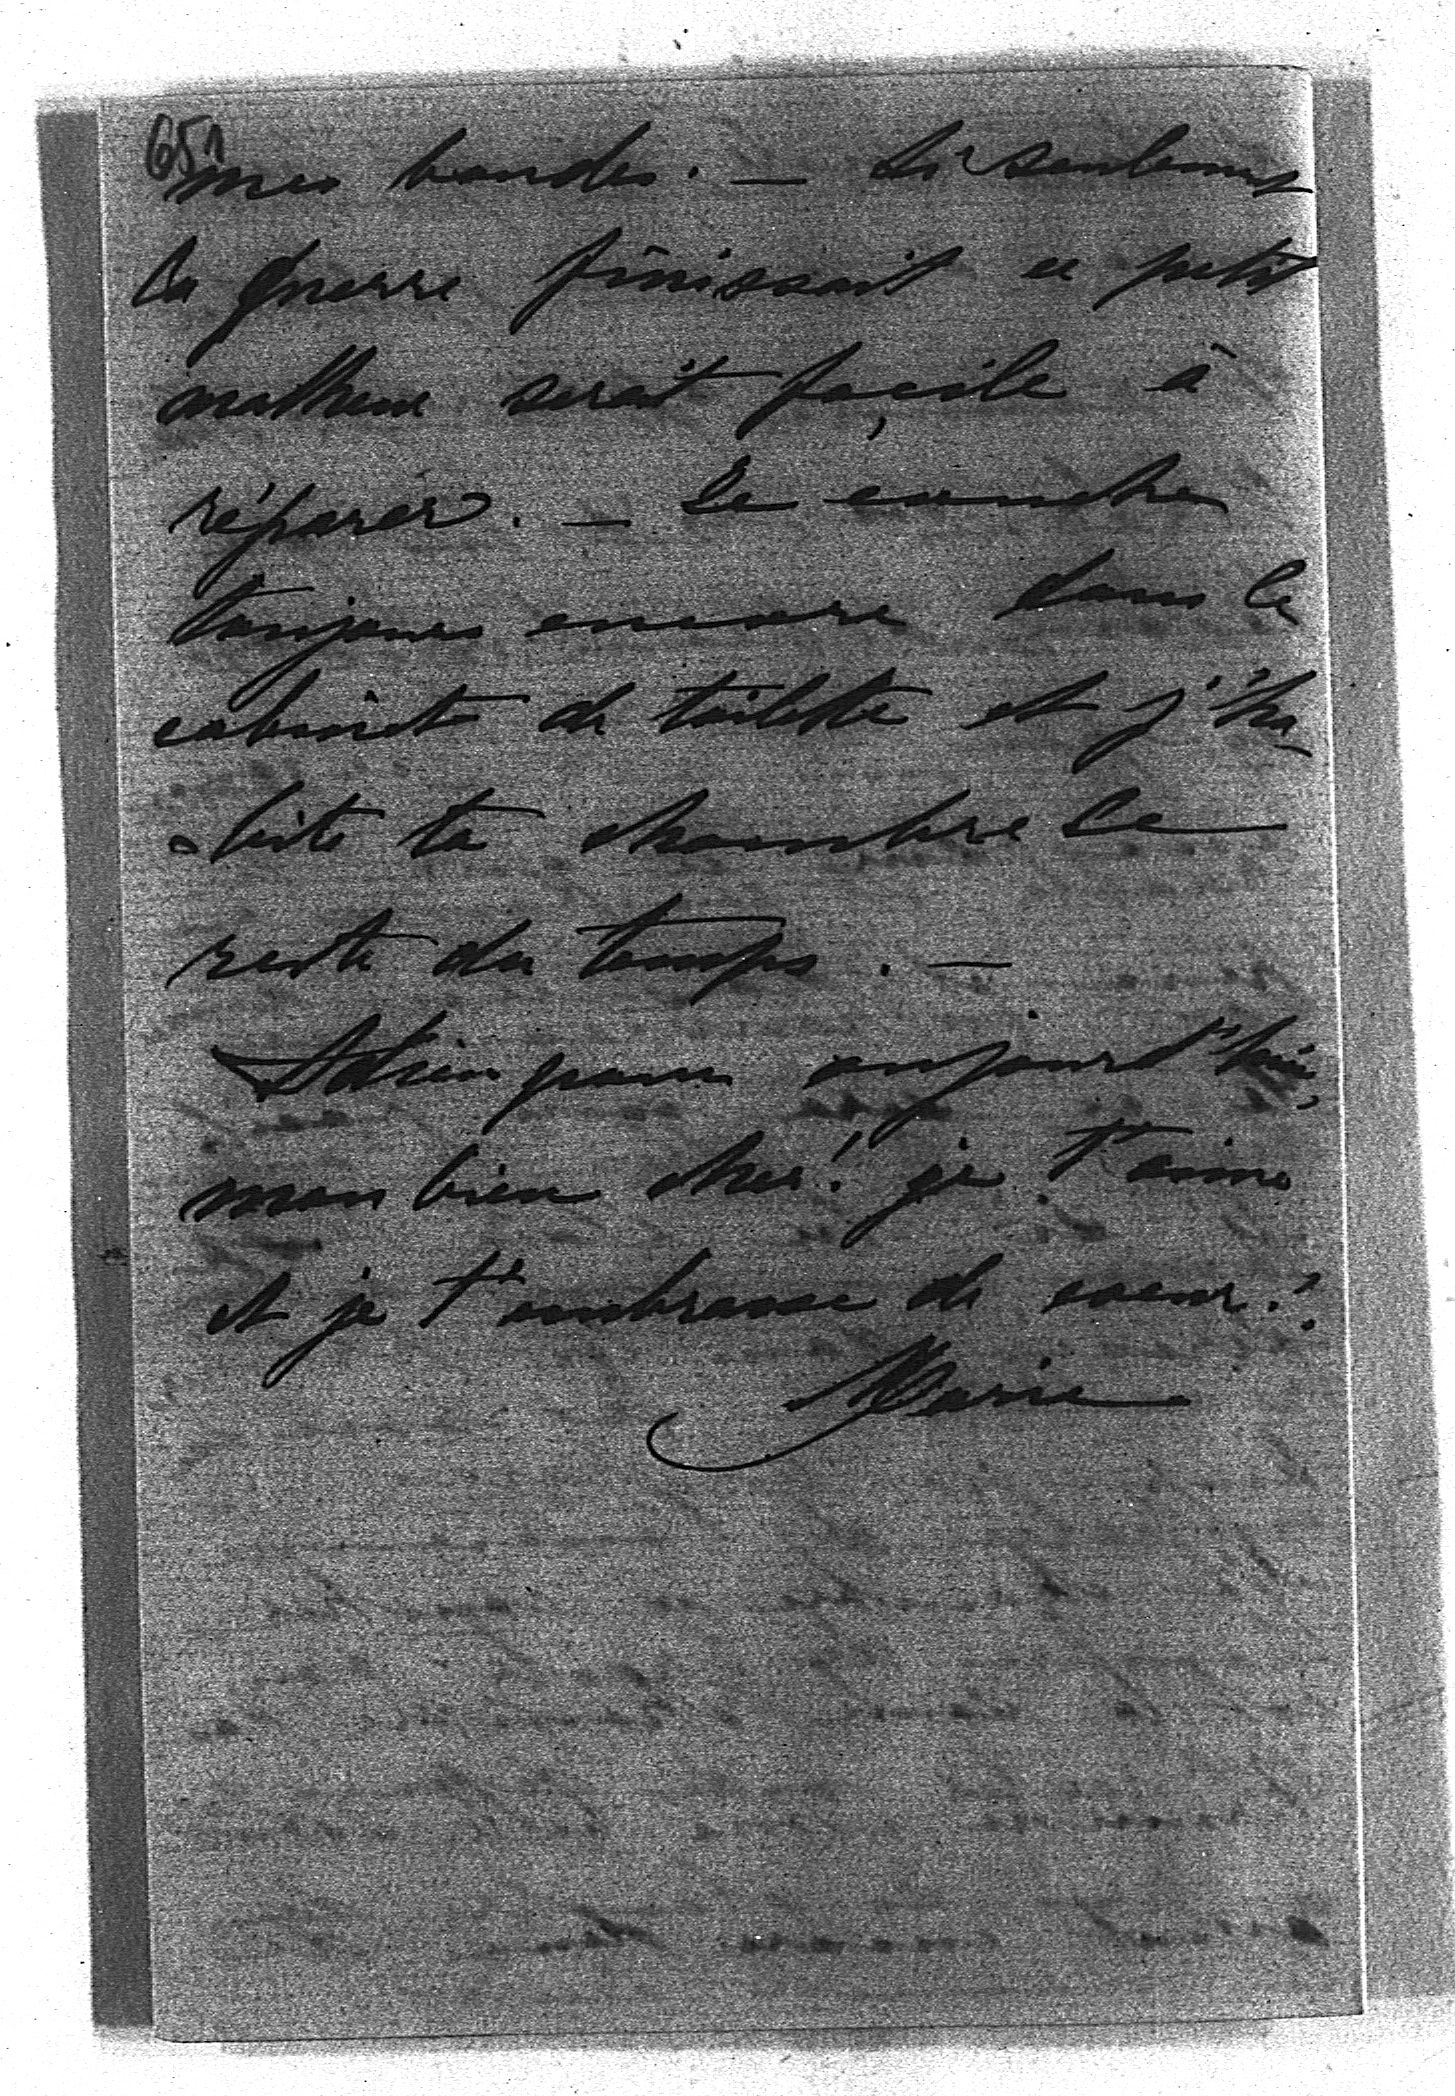 651
mes bandes. — Si seulement
la guerre finissait ce petit
malheur serait facile à
réparer. — Je couche
toujours encore dans le
cabinet de toilette et j'ha-
-bite ta chambre le
reste du temps. —
Adieu pour aujourd'hui,
mon bien cher! je t'aime
et je t'embrasse de coeur!
Marie